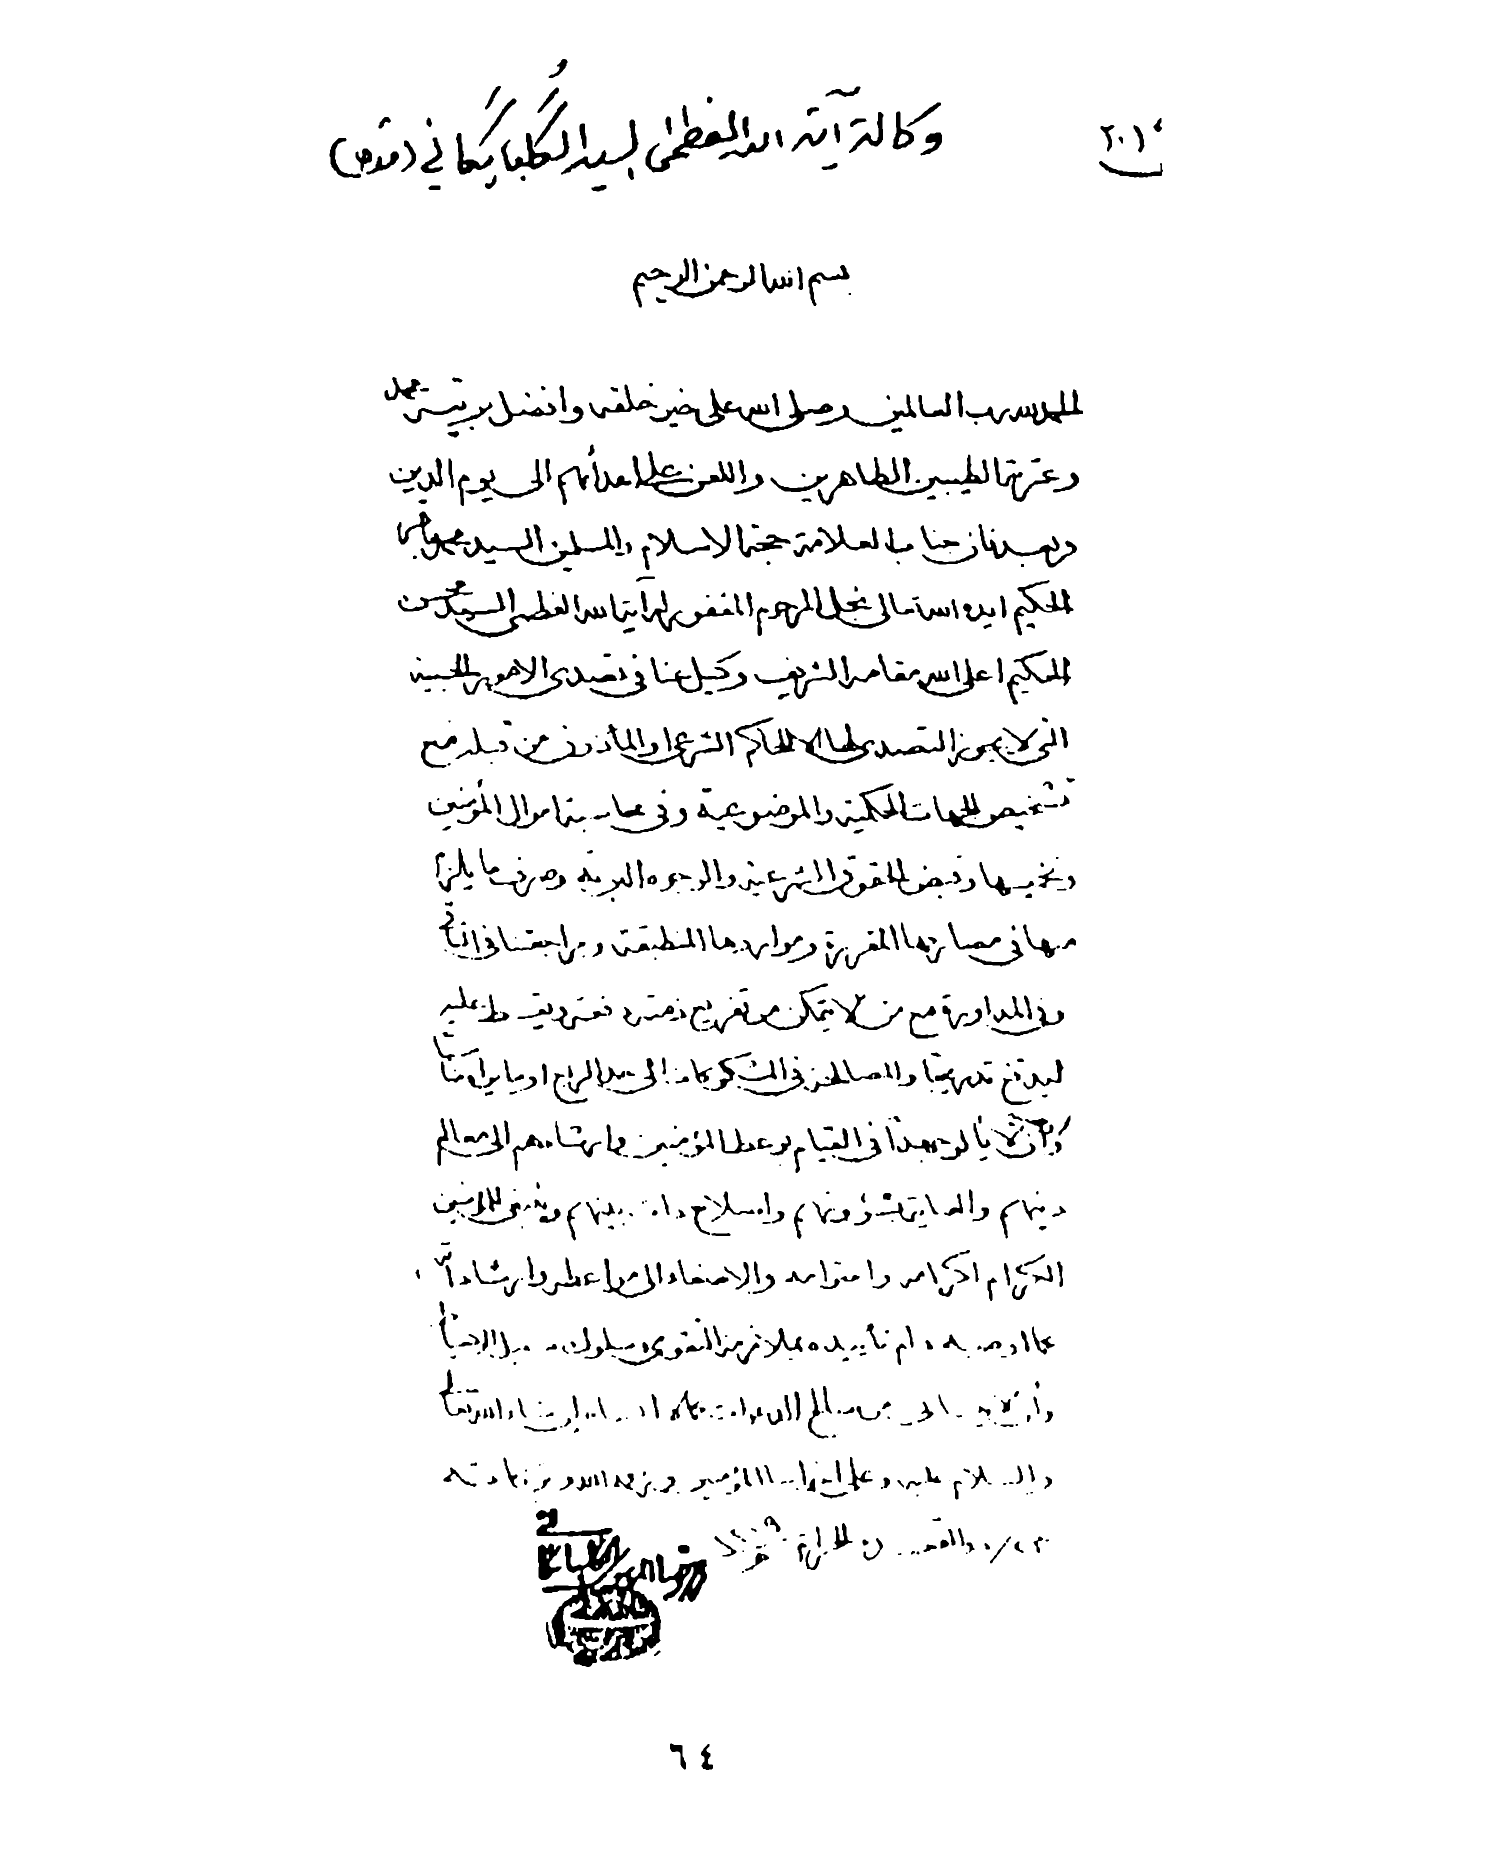 ٢٠١٤
وكالة آية الله العظمى السيد الگلپايگاني (قده)
بسم الله الرحمن الرحيم
الحمد لله رب العالمين وصلى الله على خير خلقه وافضل بريته محمد
وعترته الطيبين الطاهرين واللعن على اعدائهم الى يوم الدين
وبعد فان جناب العلامة حجة الاسلام والمسلمين السيد محمد باقر
الحكيم ايده الله تعالى نجل المرحوم المغفور له آية الله العظمى السيد محسن
الحكيم اعلى الله مقامه الشريف وكيل عنا في تصدى الامور الحسبية
التي لا يجوز التصدى لها الا للحاكم الشرعى او المأذون من قبله مع
تشخيص الجهات الحكمية والموضوعية وفي محاسبة اموال المؤمنين
وتخميسها وقبض الحقوق الشرعية والوجوه البرية وصرف ما يلزم
منها في مصارفها المقررة ومواردها المنطبقة ومراجعتنا في الباقي
وفي المداورة مع من لا يتمكن من تفريغ ذمته دفعة ويقسط عليه
ليدفع تدريجا والمصالحة في المشكوكات الى حد الربع او ما يراه مناسبا
وان لا يألو جهدا في القيام بوعظ المؤمنين وارشادهم الى معالم
دينهم والعناية بشؤونهم واصلاح ذات بينهم وينبغى للمؤمنين
الكرام اكرامه واحترامه والاصغاء الى مواعظه وارشاداته
كما اوصيه دام تأييده بملازمة التقوى وسلوك سبيل الاحتياط
وأن لا ينساني من صالح الدعوات كما لا انساه ان شاء الله تعالى
والسلام عليه وعلى اخواننا المؤمنين ورحمة الله وبركاته
ذي القعدة الحرام
٦٤